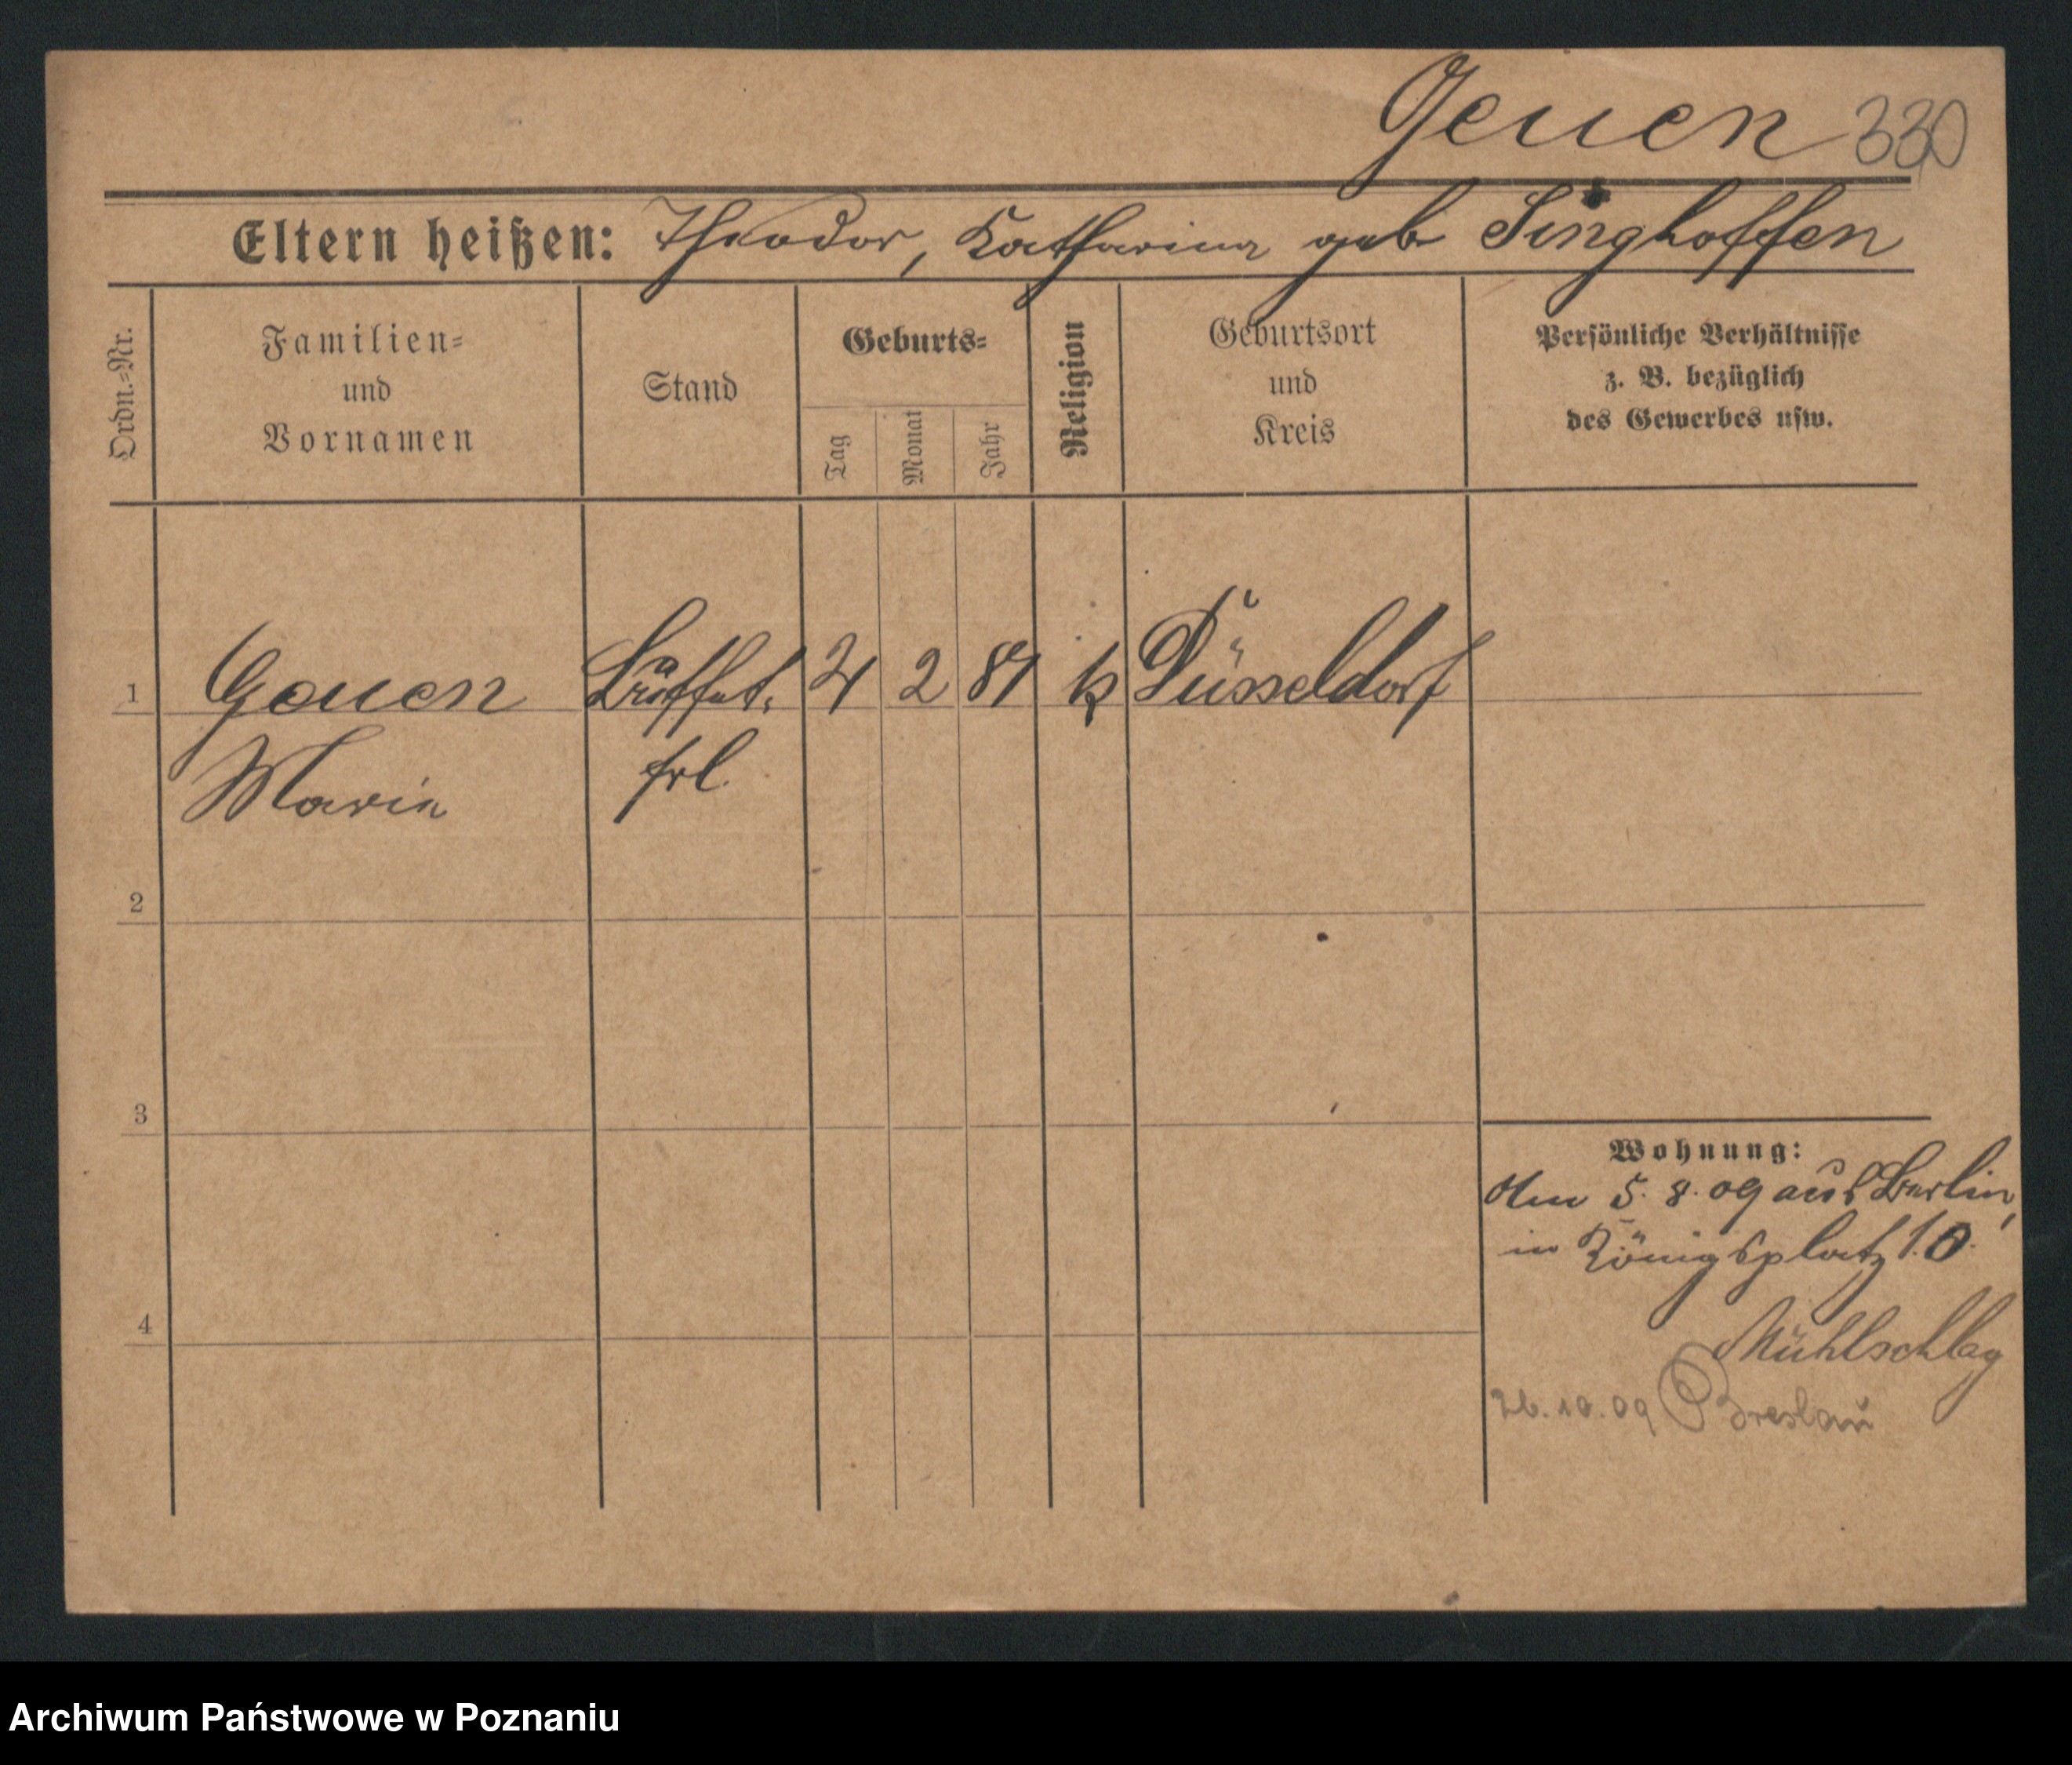 Geuen 330
Eltern heißen: Theodor, Katharina geb Singhoffen
Ordn.-Nr.
Familien-
und
Vornamen
Stand
Geburts-
Tag
Monat
Jahr
Religion
Geburtsort
und
Kreis
Persönliche Verhältnisse
z. B. bezüglich
des Gewerbes usw.
1 Geuen Büffet. 2 87 k Düsseldorf
Marie frl.
2
3
4
Wohnung:
Am 5. 8. 09 aus Berlin,
in Königsplatz 10.
Mühlschlag
26.10.09 Breslau
Archiwum Państwowe w Poznaniu